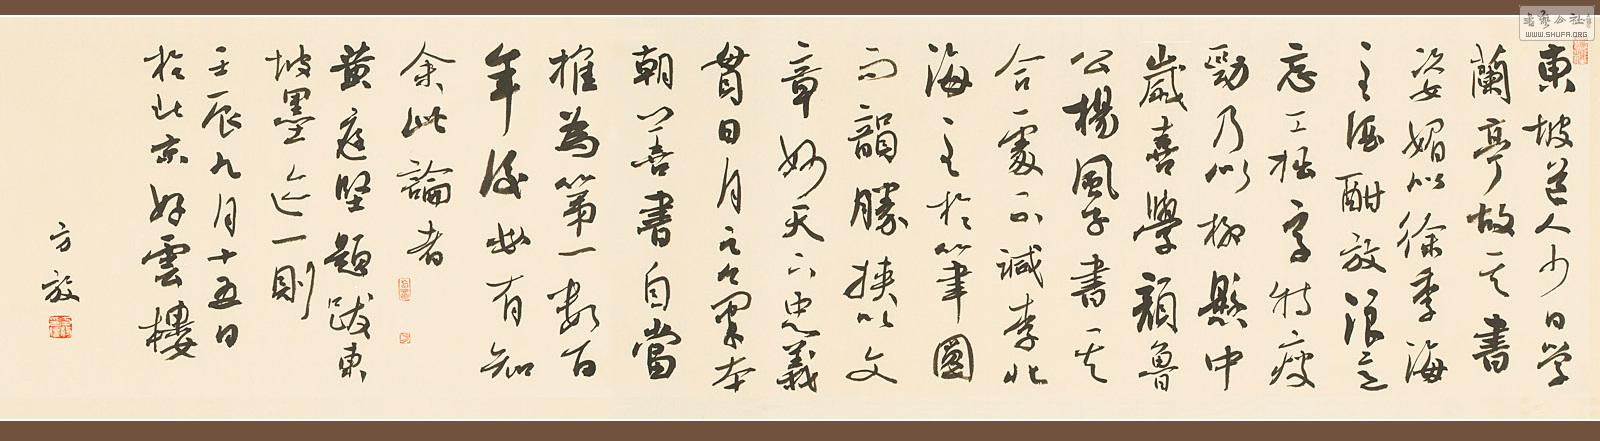 東坡道人少日學
蘭亭故其書
姿媚似徐季海
至酒酣放浪意
忘工拙字特瘦
勁乃似柳懸中
歲喜學顏魯
公楊風子書其
合處不減李北
海至於筆圓
而韻勝挾以文
章妙天下忠義
貫日月之氣本
朝善書自當
推為第一數百
年後必有知
余此論者
黃庭堅題跋東
坡墨迹一則
壬辰九月十五日
於北京好雲樓
方放
WWW.SHUFA.ORG